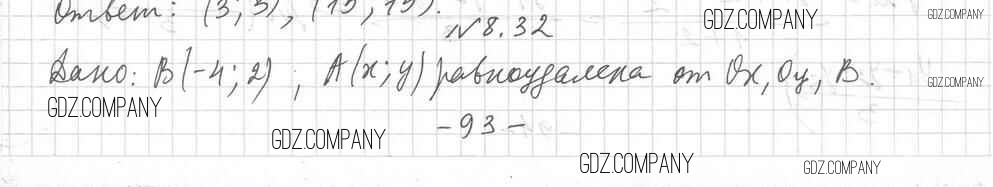 Ответ: (3; 3), (15; 15).
№8.32
Дано: B(-4; 2), A(x; y) равноудалена от Ox, Oy, B.
-93-
GDZ.COMPANY
GDZ.COMPANY
GDZ.COMPANY
GDZ.COMPANY
GDZ.COMPANY
GDZ.COMPANY
GDZ.COMPANY